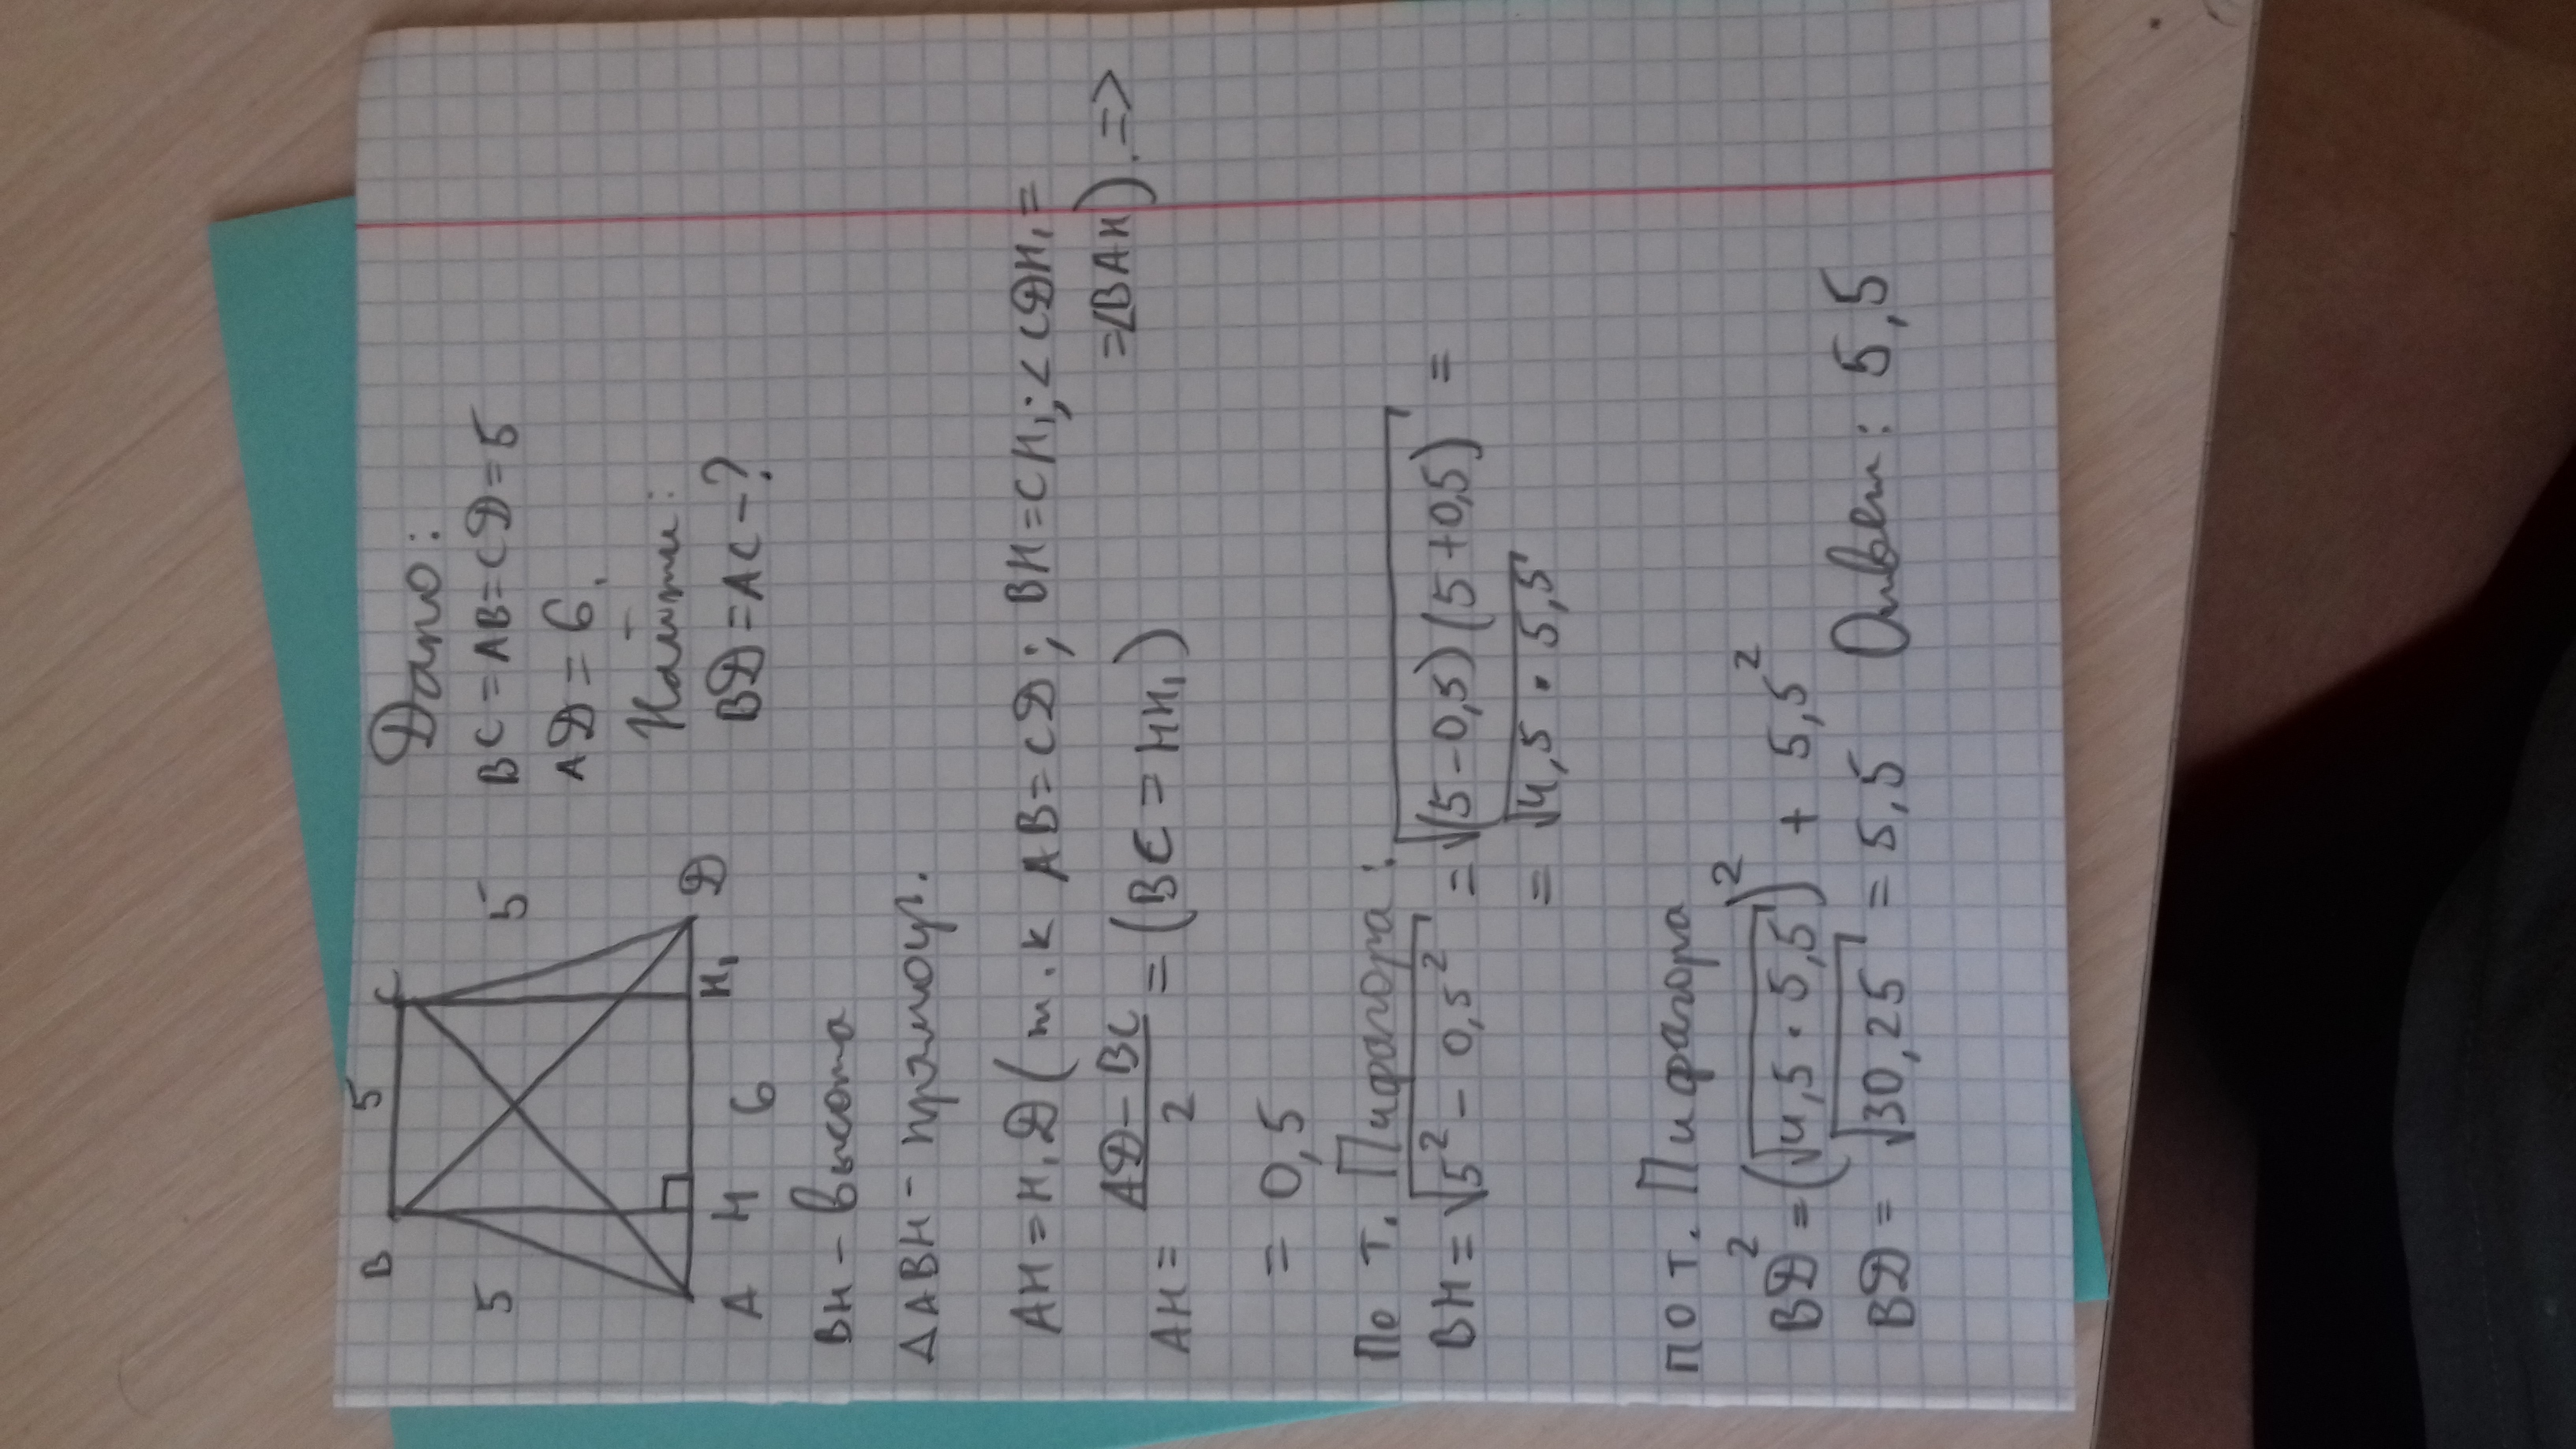 B 5 C
5 5
A H 6 H₁ D
Дано:
BC = AB = CD = 5
AD = 6.
Найти:
BD = AC - ?
BH - высота
△ABH - прямоуг.
AH = H₁D (т.к AB = CD; BH = CH₁; <CDH₁ =
= <BAH). =>
AH = (AD - BC)/2 = (BC = HH₁)
= 0,5
По т. Пифагора:
BH = √(5² - 0,5²) = √((5 - 0,5)(5 + 0,5)) =
= √(4,5 · 5,5)
по т. Пифагора
BD² = (√(4,5 · 5,5))² + 5,5²
BD = √30,25 = 5,5 Ответ: 5,5